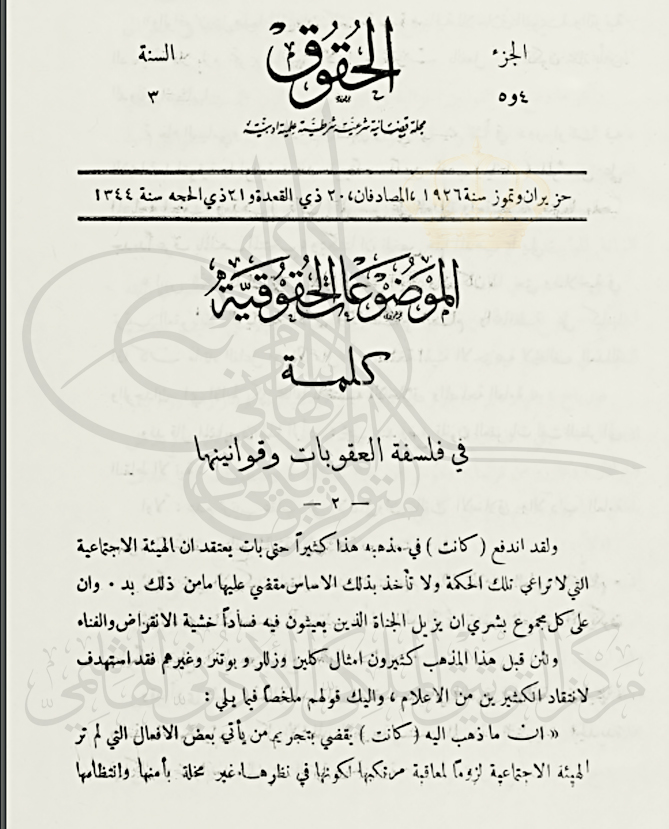 الجزء
٤و٥
الحقوق
السنة
٣
مجلة قضائية شرعية شرطية علمية ادبية
حزيران وتموز سنة ١٩٢٦ ،المصادفان، ٢٠ ذي القعدة و٢١ ذي الحجه سنة ١٣٤٤
الموضوعات الحقوقية
كلمة
في فلسفة العقوبات وقوانينها
— ٢ —
ولقد اندفع ( كانت ) في مذهبه هذا كثيراً حتى بات يعتقد ان الهيئة الاجتماعية
التي لا تراعي تلك الحكمة ولا تأخذ بذلك الاساس مقضي عليها مامن ذلك بد ٠ وان
على كل مجموع بشري ان يزيل الجناة الذين يعيثون فيه فساداً خشية الانقراض والفناء
ولئن قبل هذا المذهب كثيرون امثال كلين وزللر و بوتنر وغيرهم فقد استهدف
لانتقاد الكثيرين من الاعلام ، واليك قولهم ملخصاً فيما يلي :
« ان ما ذهب اليه ( كانت ) يقضي بتجريم من يأتي بعض الافعال التي لم تر
الهيئة الاجتماعية لزوماً لمعاقبة مرتكبها لكونها في نظرها غير مخلة بأمنها وانتظامها
مركز التوثيق الملكي الأردني الهاشمي